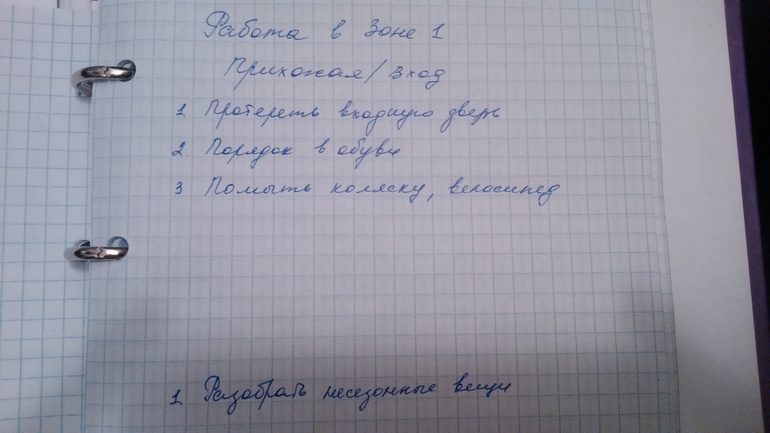 Работа в Зоне 1
Прихожая/Вход
1. Протереть входную дверь
2. Порядок в обуви
3 Помыть коляску, велосипед
1. Разобрать несезонные вещи